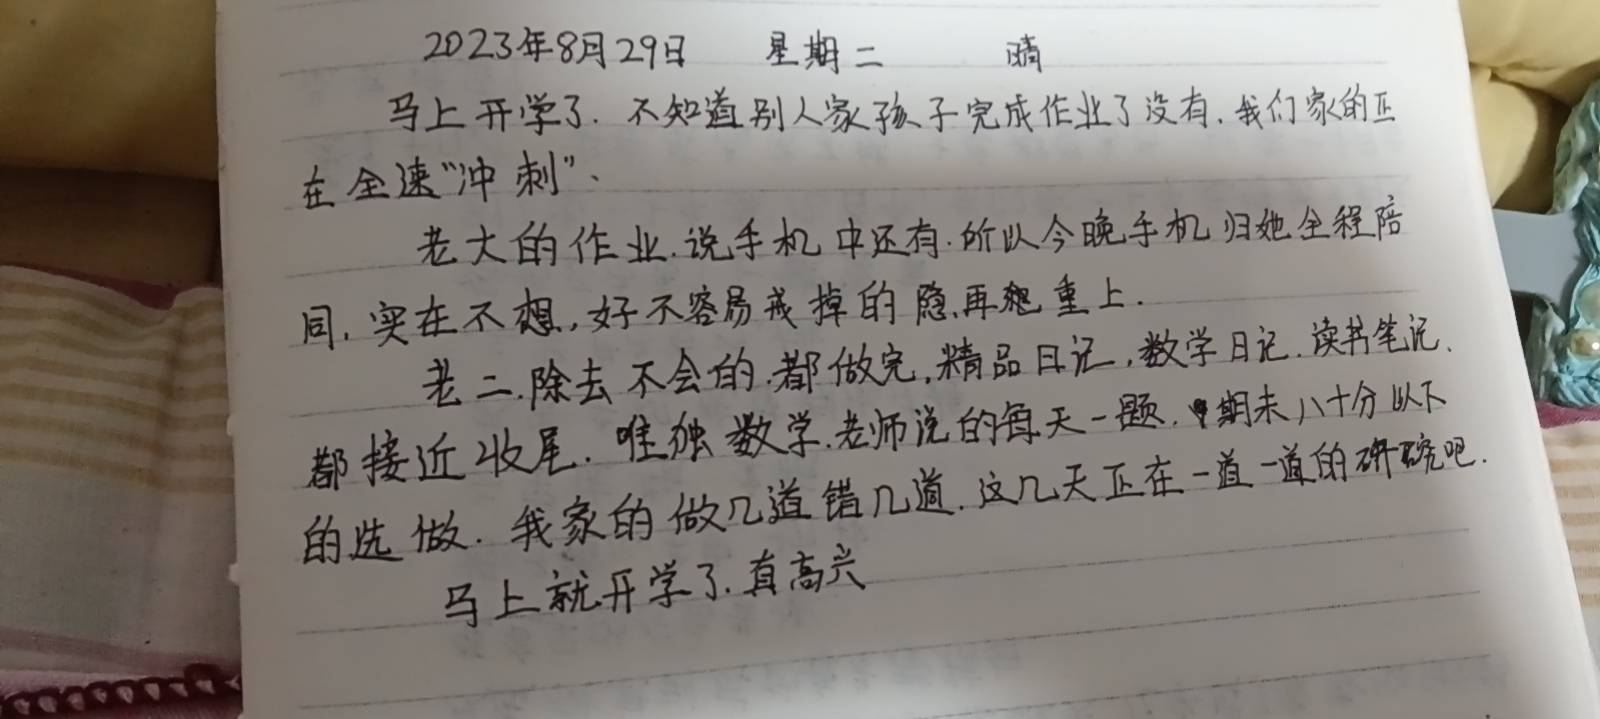 2023年8月29日 星期二 晴
马上开学了.不知道别人家孩子完成作业了没有.我们家的正
在全速"冲刺".
老大的作业.说手机中还有.所以今晚手机归她全程陪
同.实在不想,好不容易戒掉的隐.再重上.
老二.除去不会的.都做完.精品日记,数学日记.读书笔记.
都接近收尾.唯独数学.老师说的每天一题.期末八十分以下
的选做.我家的做几道错几道.这几天正在一道一道的研究吧.
马上就开学了.真高兴